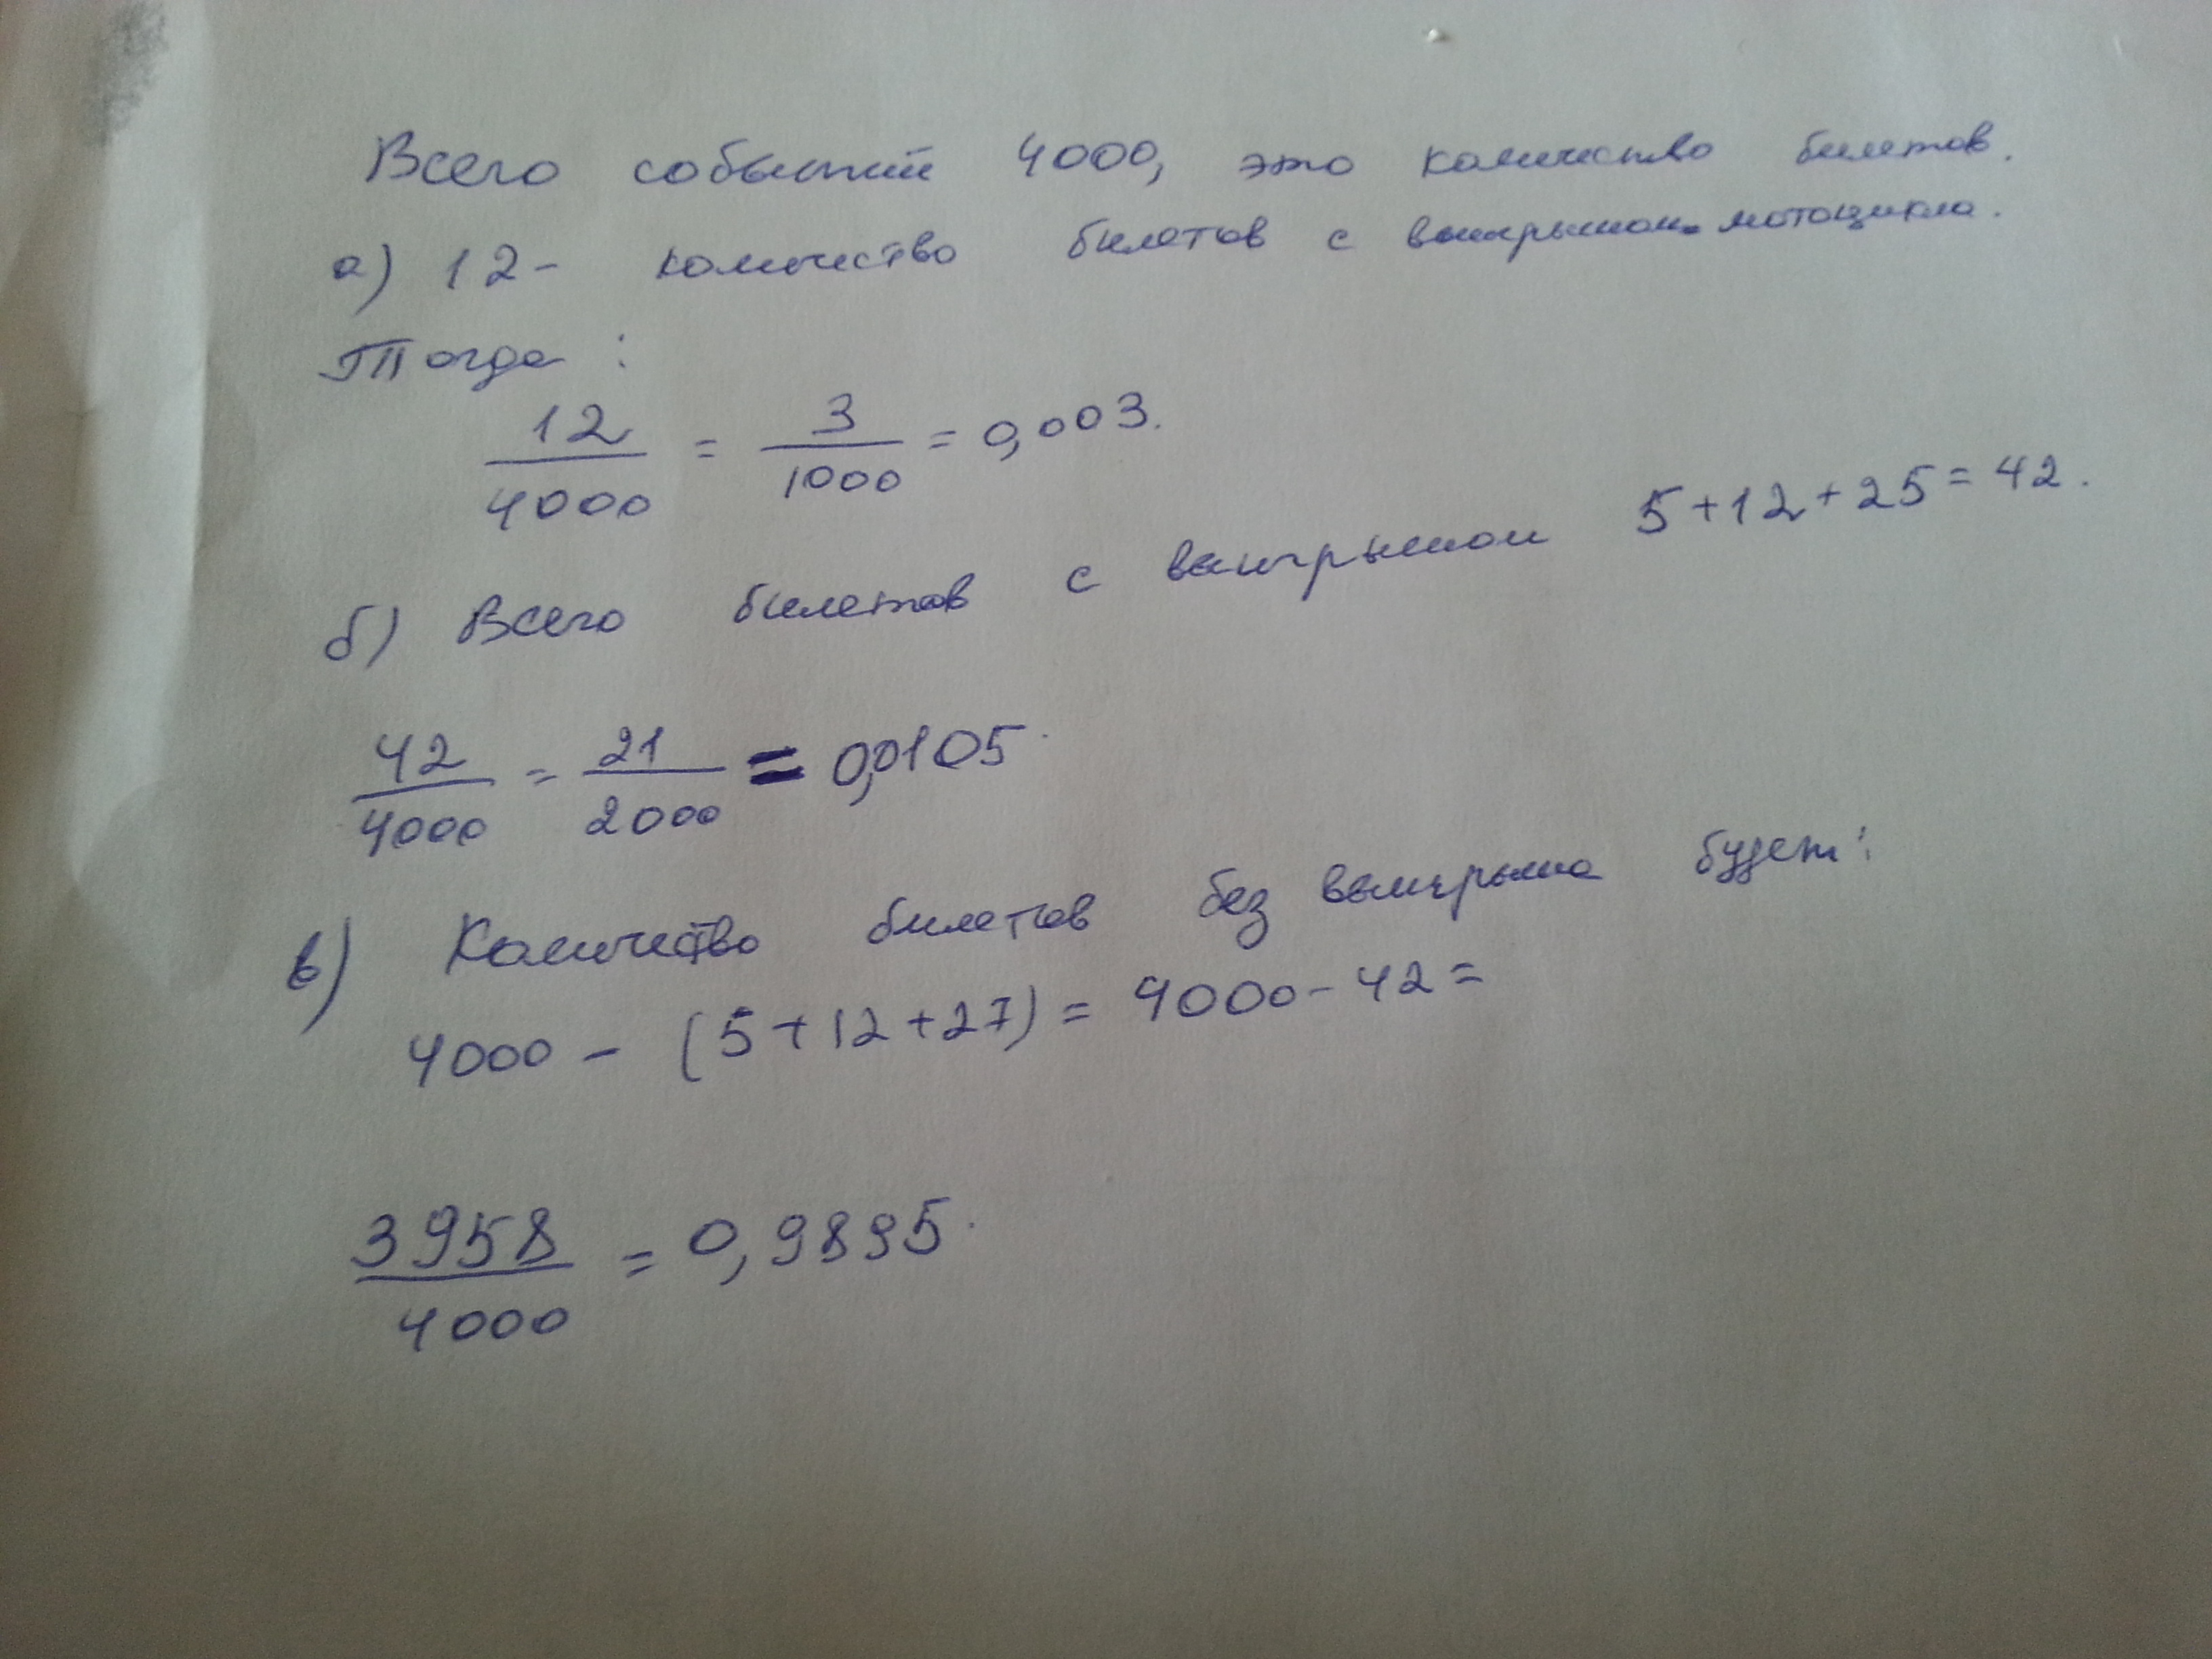 Всего событий 4000, это количество билетов.
а) 12 - количество билетов с выигрышом мотоцикла.
Тогда :
12/4000 = 3/1000 = 0,003.
б) Всего билетов с выигрышом 5+12+25=42.
42/4000 = 21/2000 = 0,0105
в) Количество билетов без выигрыша будет:
4000 - (5+12+27) = 4000 - 42 =
3958/4000 = 0,9895